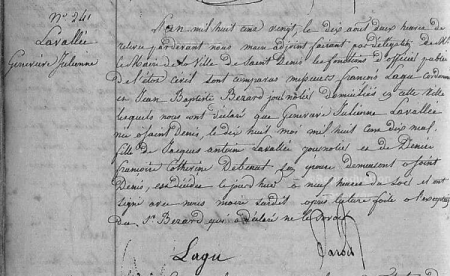 N° 241
Lavallée
Genevieve Julienne
L'an mil huit cent vingt, le dix aout deux heures de
relevée pardevant nous maire adjoint faisant par délégation de Mr
le Maire de la Ville de Saint Denis les fonctions d'officier public
de l'état civil sont comparus messieurs françois Lagu cordonnier
et Jean Baptiste Bezard journalier domiciliés en cette Ville
lesquels nous ont déclaré que Genevieve Julienne Lavallée
née a Saint Denis, le dix huit mai mil huit cent dix neuf,
fille de Jacques antoine Lavallée journalier et de Denise
françoise Catherine son épouse demeurant a Saint
Denis, est décédée le jour d'hier a neuf heures du soir et ont
signé avec nous maire susdit après lecture faite a l'exception
du Sr Bezard qui a déclaré ne le savoir
Lagu